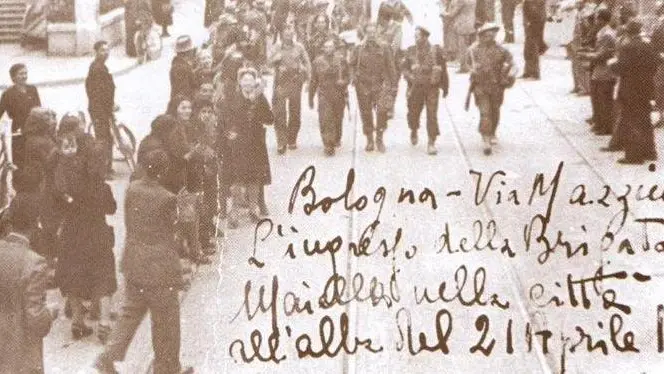 Bologna - Via Mazzin
L'ingresso della Brigata
Maiella nella città
all'alba del 21 Aprile 1